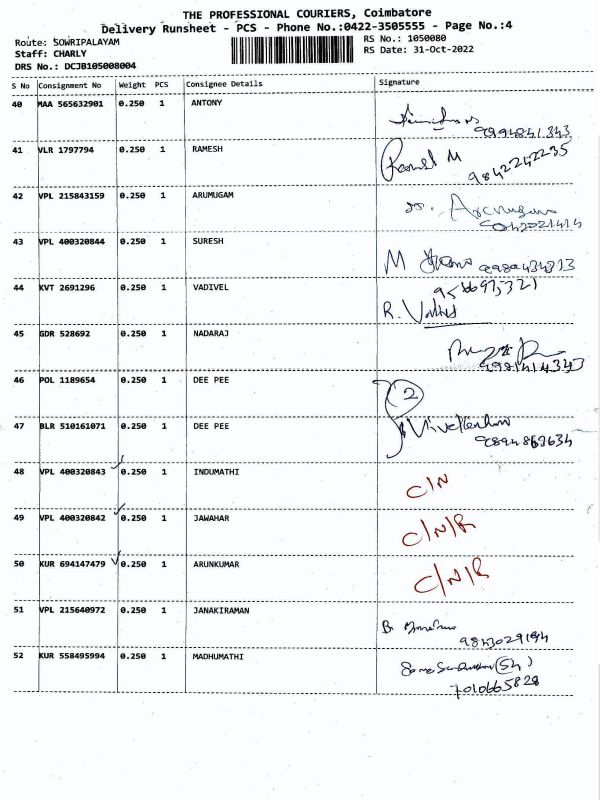 THE PROFESSIONAL COURIERS, Coimbatore
Delivery Runsheet - PCS - Phone No.:0422-3505555 - Page No.:4
Route: SOWRIPALAYAM
RS No.: 1050080
Staff: CHARLY
RS Date: 31-Oct-2022
DRS No.: DCJB105008004
S No Consignment No Weight PCS Consignee Details Signature
40 MAA 565632901 0.250 1 ANTONY
9994841343
41 VLR 1797794 0.250 1 RAMESH
9842242235
42 VPL 215843159 0.250 1 ARUMUGAM
43 VPL 400320844 0.250 1 SURESH
M
44 KVT 2691296 0.250 1 VADIVEL
R.
45 GDR 528692 0.250 1 NADARAJ
46 POL 1189654 0.250 1 DEE PEE
2
47 BLR 510161071 0.250 1 DEE PEE
48 VPL 400320843 0.250 1 INDUMATHI
C/N
49 VPL 400320842 0.250 1 JAWAHAR
C/N/R
50 KUR 694147479 0.250 1 ARUNKUMAR
C/N/R
51 VPL 215640972 0.250 1 JANAKIRAMAN
52 KUR 558495994 0.250 1 MADHUMATHI
7010665828